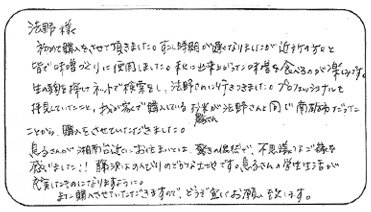 法野様
初めて購入をさせて頂きました。少し時期が遅くなりましたが近所のママ達と
皆で味噌づくりに使用しました。秋に出来上がった味噌を食べるのが楽しみです。
生の麹を探してネットで検索をし、法野さんに行きつきました。プロフィールを
拝見していたところ、我が家で購入しているお米が法野さんと同じ南
ことから、購入をさせていただきました。
息子さんが湘南台近くにお住まいとは、驚きの偶然で、不思議なご縁を
感じました!! 藤沢はのんびりのどかな土地です。息子さんの学生生活が
充実したものになりますように。
また購入させていただきますので、どうぞ宜しくお願い致します。